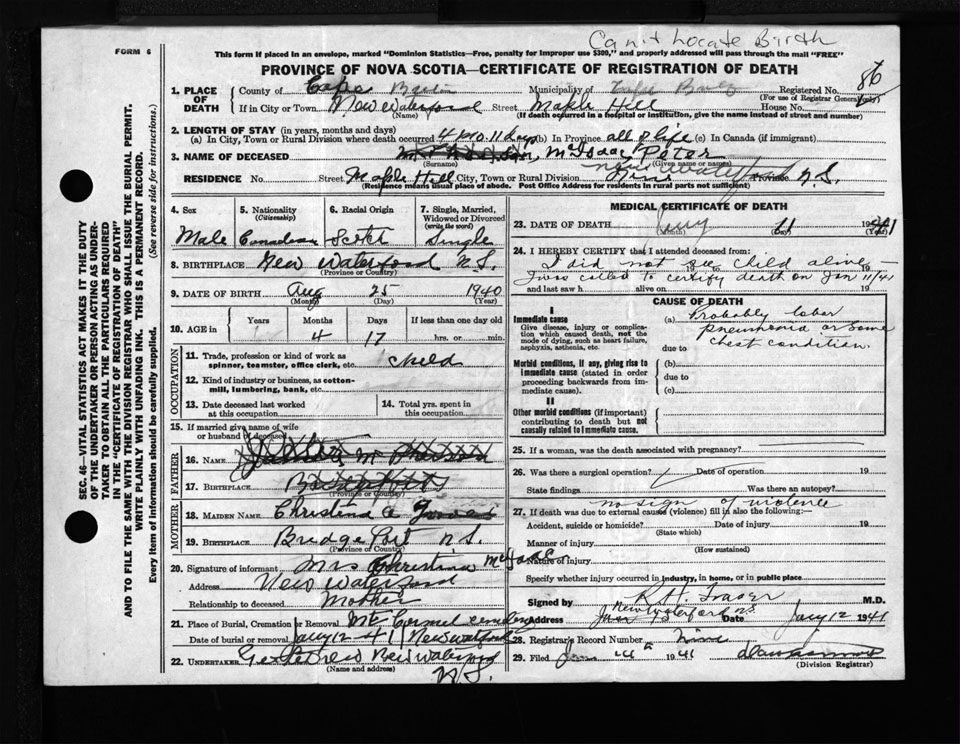 Can't Locate Birth
FORM 6
This form if placed in an envelope, marked "Dominion Statistics—Free, penalty for improper use $300," and properly addressed will pass through the mail "FREE"
PROVINCE OF NOVA SCOTIA—CERTIFICATE OF REGISTRATION OF DEATH
86
1. PLACE OF DEATH
County of Cape Breton Municipality of Cape Breton Registered No.
(For use of Registrar General only)
If in City or Town New Waterford Street Maple Hill House No.
(Name) (If death occurred in a hospital or institution, give its name instead of street and number)
2. LENGTH OF STAY (in years, months and days)
(a) In City, Town or Rural Division where death occurred 4 mo. 11 days (b) In Province all of life (c) In Canada (if immigrant)
3. NAME OF DECEASED McIsaac, Peter
(Surname) (Given name or names)
RESIDENCE No. Street Maple Hill City, Town or Rural Division New Waterford Province N.S.
(Residence means usual place of abode. Post Office Address for residents in rural parts not sufficient.)
4. Sex
Male
5. Nationality
(Citizenship)
Canadian
6. Racial Origin
Scotch
7. Single, Married, Widowed or Divorced
(write the word)
Single
8. BIRTHPLACE New Waterford N.S.
(Province or Country)
9. DATE OF BIRTH Aug 25 1940
(Month) (Day) (Year)
10. AGE in
Years Months Days If less than one day old
4 17 hrs. or min.
OCCUPATION
11. Trade, profession or kind of work as spinner, teamster, office clerk, etc. child
12. Kind of industry or business, as cotton-mill, lumbering, bank, etc.
13. Date deceased last worked at this occupation
14. Total yrs. spent in this occupation
15. If married give name of wife or husband of deceased
FATHER
16. NAME
17. BIRTHPLACE
(Province or Country)
MOTHER
18. MAIDEN NAME Christina A
19. BIRTHPLACE Bridge Port N.S.
(Province of Country)
20. Signature of informant Mrs Christina McIsaac
Address New Waterford
Relationship to deceased Mother
21. Place of Burial, Cremation or Removal Mt Carmel cemetery
Date of burial or removal Jany 12-41 New Waterford
22. UNDERTAKER New Waterford
(Name and address)
N.S.
MEDICAL CERTIFICATE OF DEATH
23. DATE OF DEATH Jany 11 1941
(Month) (Day) (Year)
24. I HEREBY CERTIFY that I attended deceased from:
I did not see child alive —
I was called to certify death on Jan 11/41
and last saw h alive on 19
CAUSE OF DEATH
I
Immediate cause
Give disease, injury or complication which caused death, not the mode of dying, such as heart failure, asphyxia, asthenia, etc.
(a) Probably lobar
pneumonia or some
chest condition.
due to
Morbid conditions, if any, giving rise to immediate cause (stated in order proceeding backwards from immediate cause).
(b)
due to
(c)
II
Other morbid conditions (if important) contributing to death but not causally related to immediate cause.
25. If a woman, was the death associated with pregnancy?
26. Was there a surgical operation? Date of operation 19
State findings Was there an autopsy?
no sign of violence
27. If death was due to external causes (violence) fill in also the following:—
Accident, suicide or homicide? Date of injury 19
(State which)
Manner of injury
(How sustained)
Nature of injury
Specify whether injury occurred in industry, in home, or in public place
Signed by R.H. Fraser M.D.
Address New Waterford N.S. Date Jany 12 1941
28. Registrar's Record Number Nine
29. Filed Jan 14th 1941
(Division Registrar)
SEC. 46—VITAL STATISTICS ACT MAKES IT THE DUTY
OF THE UNDERTAKER OR PERSON ACTING AS UNDER-
TAKER TO OBTAIN ALL THE PARTICULARS REQUIRED
IN THE "CERTIFICATE OF REGISTRATION OF DEATH" AND TO FILE THE SAME WITH THE DIVISION REGISTRAR WHO SHALL ISSUE THE BURIAL PERMIT.
WRITE PLAINLY WITH UNFADING INK. THIS IS A PERMANENT RECORD.
Every item of information should be carefully supplied. (See reverse side for instructions.)